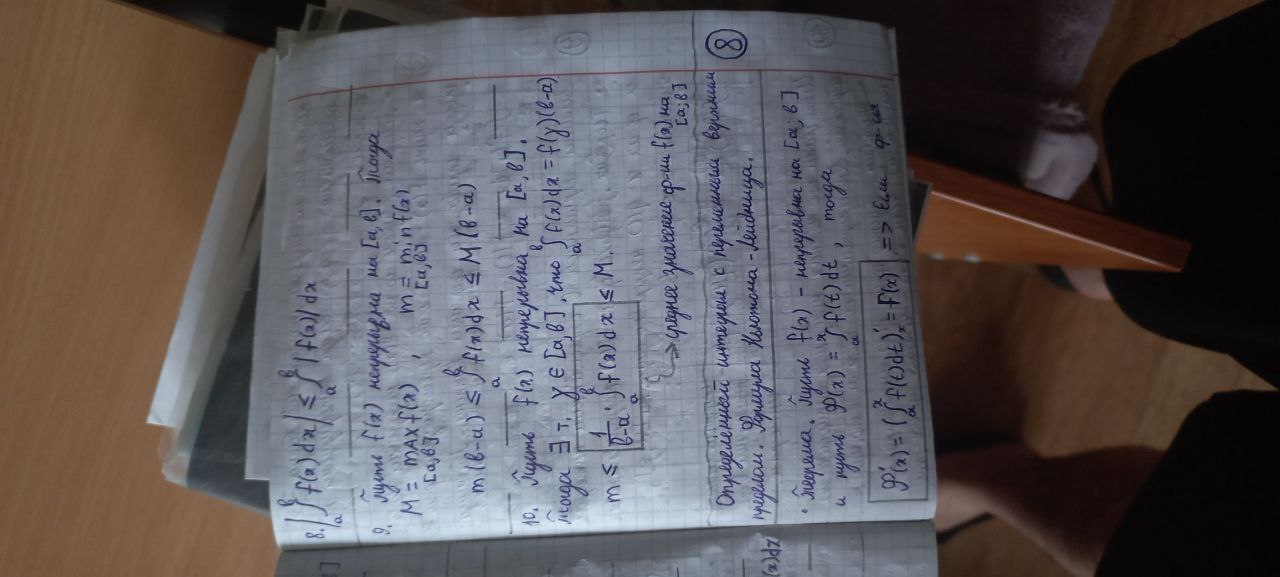 8. |∫ₐᵇ f(x)dx| ≤ ∫ₐᵇ |f(x)|dx
9. Пусть f(x) непрерывна на [a,b]. Тогда
M = max f(x) , m = min f(x)
[a,b] [a,b]
m(b-a) ≤ ∫ₐᵇ f(x)dx ≤ M(b-a)
10. Пусть f(x) непрерывна на [a,b].
Тогда ∃ т. γ ∈ [a,b], что ∫ₐᵇ f(x)dx = f(γ)(b-a)
m ≤ 1/(b-a) · ∫ₐᵇ f(x)dx ≤ M.
→ среднее значение ф-ии f(x) на
[a;b]
Определенный интеграл с переменным верхним
пределом. Формула Ньютона-Лейбница.
8
• Теорема. Пусть f(x) - непрерывна на [a;b]
и пусть φ(x) = ∫ₐˣ f(t)dt, тогда
φ'(x) = (∫ₐˣ f(t)dt)'ₓ = f(x) => Если ф-ия
(x)dx